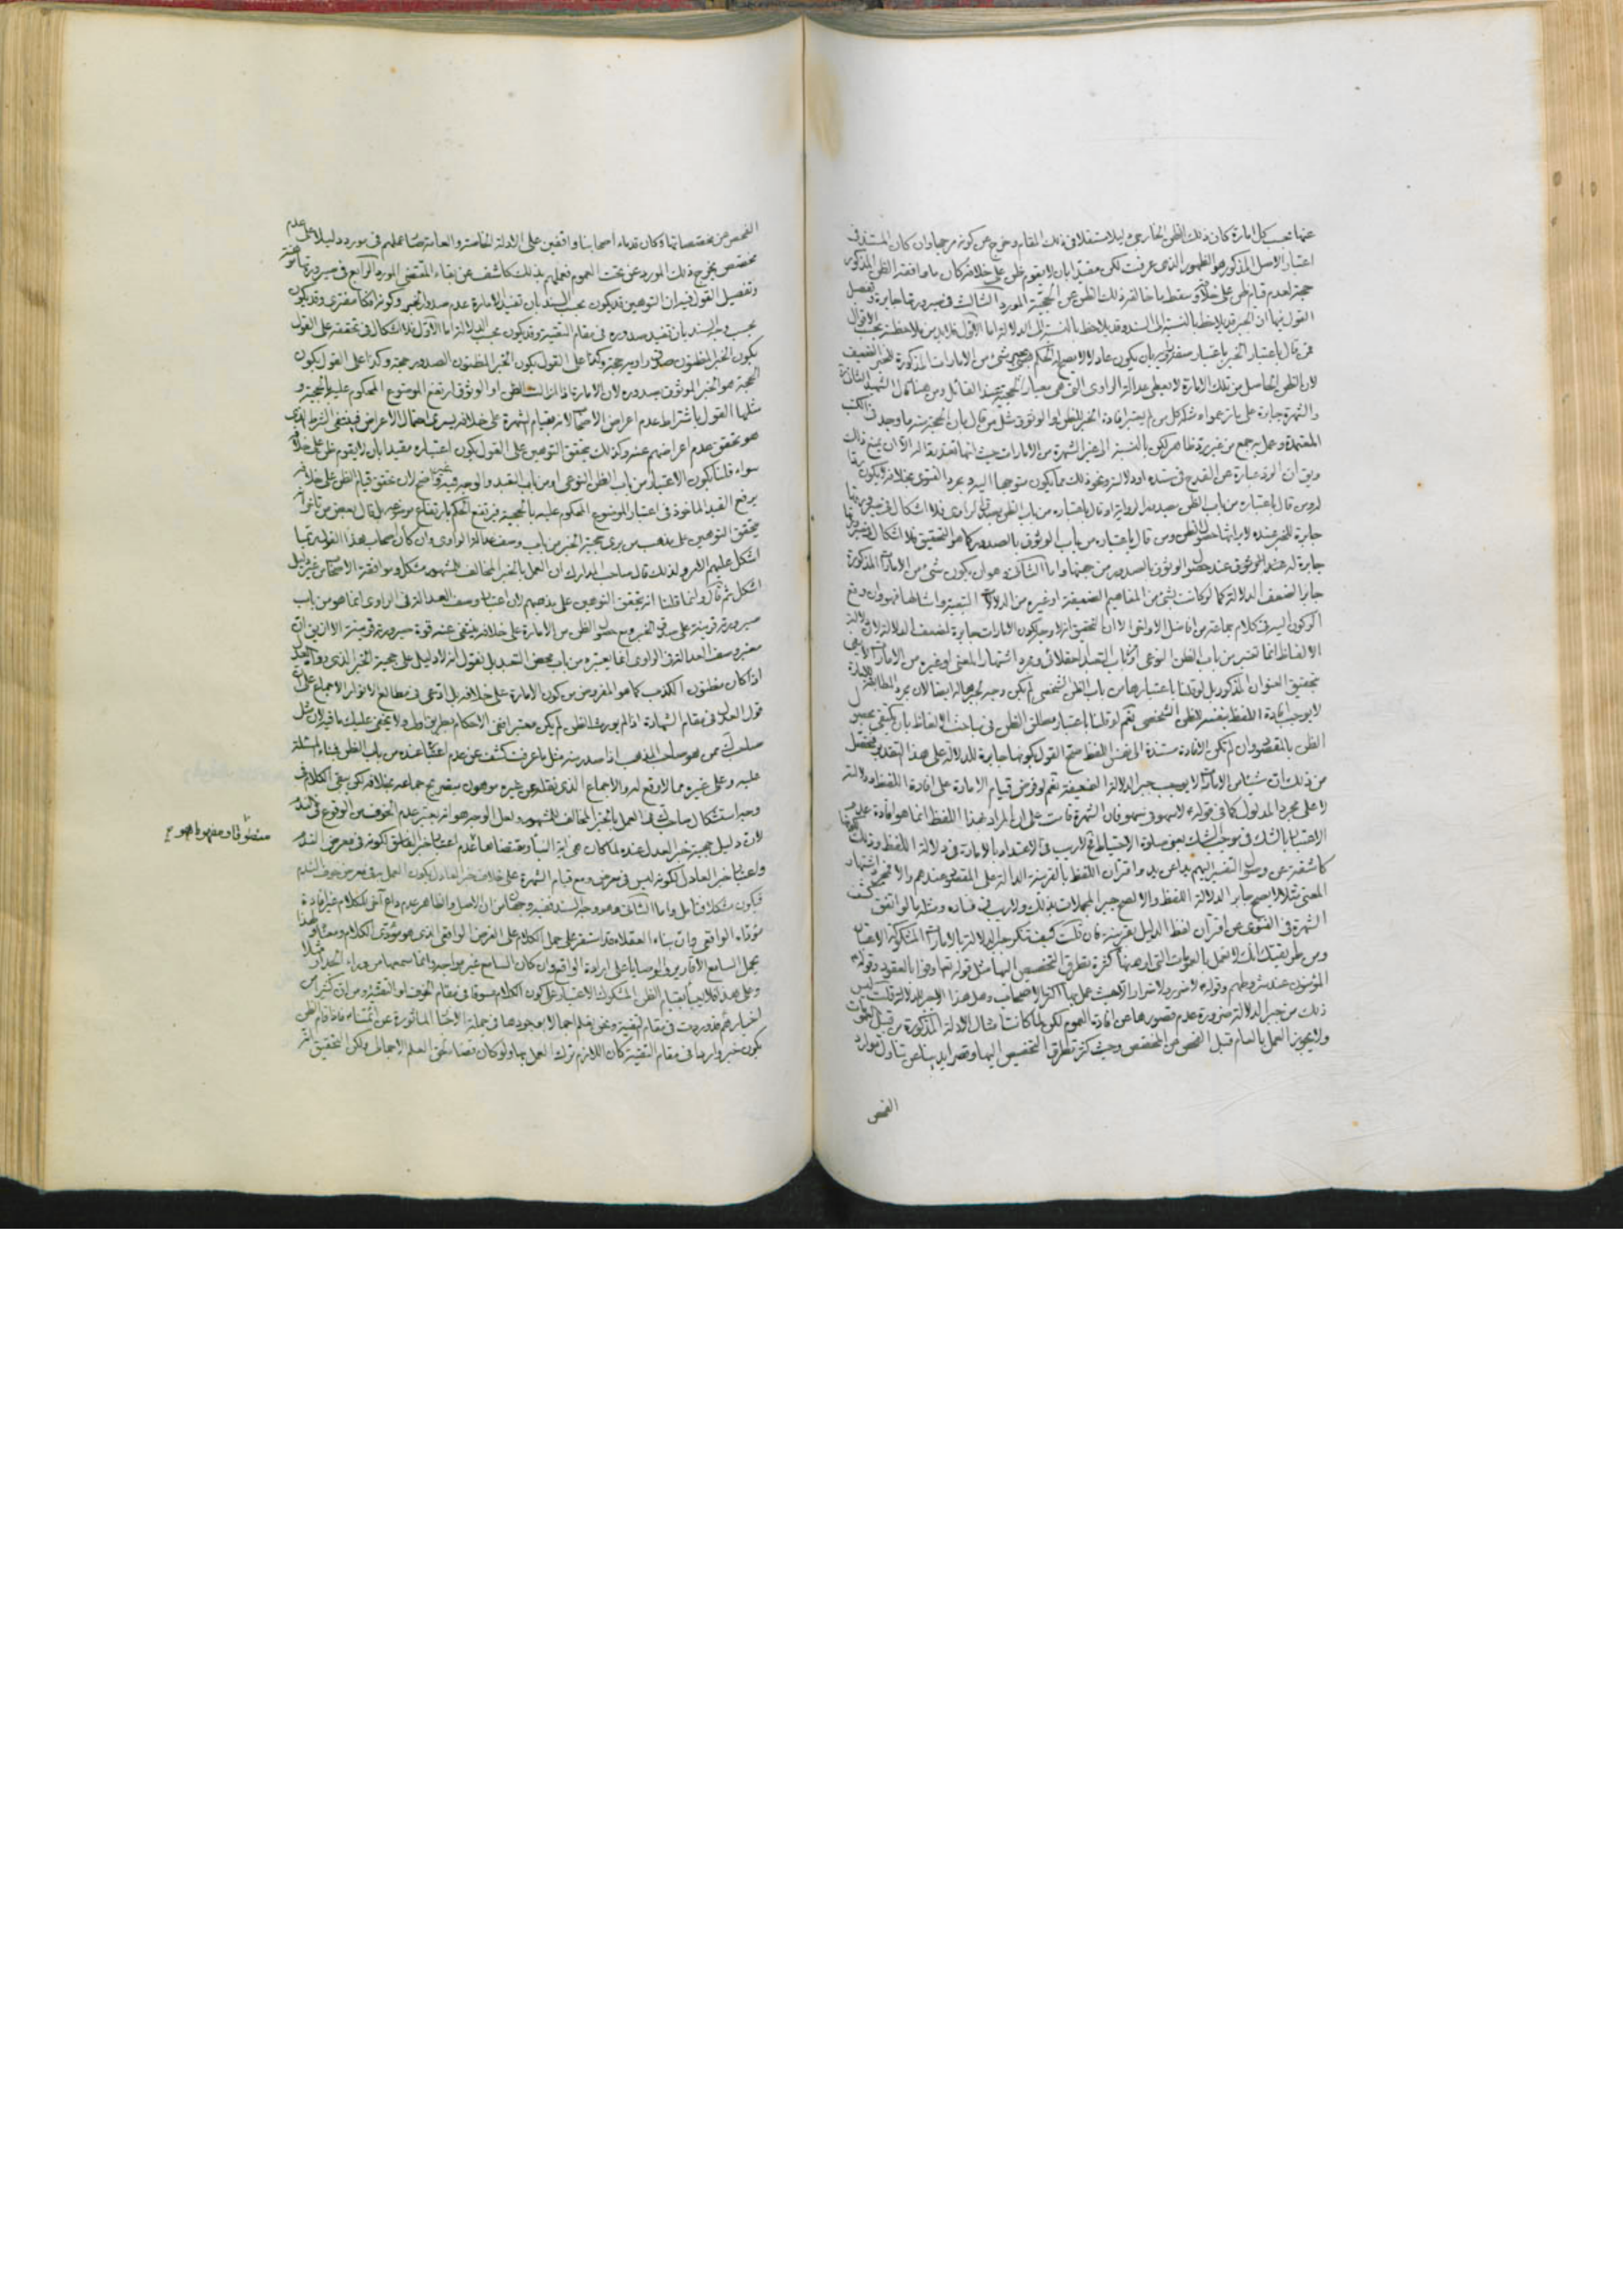 عنها بحسب كل امارة كان ذلك الظن الخارجى دليلا مستقلا فى ذلك المقام وخرج عن كونه مرجحا وان كان المستند فى
اعتبار الاصل المذكور هو الظهور الذى عرفت لكن مقيدا بان لا يقوم ظن على خلافه كان ما وافقه الظن المذكور
حجة لعدم قيام ظن على خلافه وسقط ما خالفه ذلك الظن عن الحجية المورد الثالث فى صيرورتها جابرة وتفصيل
القول فيها ان الجبر قد يلاحظ بالنسبة الى السند وقد يلاحظ بالنسبة الى الدلالة اما الاول فلابد من ملاحظة الاقوال
فمن قال باعتبار الخبر باعتبار صفة راويه بان يكون عادلا لا يصح له الحكم شىء من الامارات المذكورة للخبر الضعيف
لان الظن الحاصل من تلك الامارة لا يعطى عدالة الراوى التى هى معيار الحجية عند القائل ومن هنا قال الشهيد الثانى
والشهرة جابرة على ما زعموا وشركه كل من لم يعتبر افادة الخبر للظن او الوثوق مثل من قال بان الحجة منه ما وجد فى الكتب
المعتمدة وعمل به جمع من غير رد ظاهر لكن بالنسبة الى غير الشهرة من الامارات حيث انها
وبين ان الرد عبارة عن القدح فى سنده او دلالته ونحو ذلك مما يكون متوجها اليه ومجرد الفتوى بخلافه لا يكون ردا
له ومن قال باعتباره من باب الظن الراوى فلا اشكال فى صيرورتها
جابرة للخبر عنده لايراثها حصول الظن ومن قال باعتباره من باب الوثوق بالصدور كما هو التحقيق فلا اشكال فى صيرورتها
جابرة له عند الوثوق عند حصول الوثوق بالصدور من جهتها واما الثانى وهو ان يكون شىء من الامارات المذكورة
جابرا لضعف الدلالة كما لو كانت بشىء من المفاهيم الضعيفة او غيره من الدلالات التبعية وامثالها فهو وان وقع
الركون اليه فى كلام جماعة من افاضل الاواخر الا ان التحقيق انه لا وجه لكون الامارات جابرة لضعف الدلالة لان دلالة
الالفاظ انما تعتبر من باب الظن النوعى او من باب التعبد العقلائى ومجرد اشتهار المعنى او غيره من الامارات لا يوجب
تحقيق العنوان المذكور بل لو قلنا باعتبارها من باب الظن الشخصى لم يكن وجه لجبرها له ايضا لان مجرد المطابقة
لا يوجب افادة اللفظ بنفسه للظن الشخصى نعم لو قلنا باعتبار مطلق الظن فى مباحث الالفاظ بان يكتفى بحصول
الظن بالمقصود وان لم تكن الافادة مستندة الى نفس اللفظ صح القول بكونها جابرة للدلالة على هذا التقدير فتحصل
من ذلك ان شيئا من الامارات لا يوجب جبر الدلالة الضعيفة نعم لو فرض قيام الامارة على افادة اللفظ ودلالته
لا على مجرد المدلول كما فى قوله لا سهو فى سهو فان الشهرة قامت على ان المراد بهذا اللفظ انما هو افادة عدم
الاعتبار بالشك فى موجب الشك يعنى صلوة الاحتياط فلا ريب فى الاعتداد بالامارة فى دلالة اللفظ وذلك لكونها
كاشفة عن وصول التفسير اليهم يدا عن يد واقتران اللفظ بالقرينة الدالة على المقصود عندهم والا فمجرد اشتهار
المعنى مثلا لا يصح جابرا لدلالة اللفظ والا لصح جبر المجملات بذلك ولا ريب فى فساده ومثله ما لو اتفق كشف
الشهرة فى الفتوى عن اقتران لفظ الدليل بقرينة فان قلت كيف تنكر جبر الدلالة بالامارات المشكوكة الاعتبار
ومن طريقتك انك لا تعمل بالعمومات التى اوهنها كثرة تطرق التخصيص اليها مثل قوله تعالى اوفوا بالعقود وقوله
المؤمنون عند شروطهم وقوله لا ضرر ولا ضرار الا حيث عمل بها اكثر الاصحاب وهل هذا الا جبر للدلالة قلت ليس
ذلك من جبر الدلالة ضرورة عدم قصورها عن افادة العموم لكن لما كانت امثال الادلة المذكورة من قبيل العمومات
ولا يجوز العمل بالعام قبل الفحص عن المخصص وحيث كثر تطرق التخصيص اليها وقصر ايدينا عن تناول موارد
الفحص
الفحص عن مخصصاتها وكان قدماء اصحابنا واقفين على الادلة الخاصة والعامة صار عملهم فى مورد دليلا على عدم
مخصص يخرج ذلك المورد عن تحت العموم فعملهم بذلك كاشف عن بقاء المقتضى المورد الرابع فى صيرورتها موهنة
وتفصيل القول فيه ان التوهين قد يكون بحسب السند بان تفيد الامارة عدم صدور الخبر وكونه افكا مفترى وقد يكون
بحسب وجه السند بان تفيد صدوره فى مقام التقية وقد يكون بحسب الدلالة اما الاول فلا اشكال فى تحققه على القول
بكون الخبر المظنون صدق راويه حجة وكذا على القول بكون الخبر المظنون الصدور حجة وكذا على القول بكون
الحجة هو الخبر الموثوق بصدوره لان الامارة اذا ازالت الظن او الوثوق ارتفع الموضوع المحكوم عليه بالحجية و
مثلها القول باشتراط عدم اعراض الاصحاب لان بقيام الشهرة على خلافه يسرى احتمال الاعراض فينتفى الشرط الذى
هو تحقق عدم اعراضهم عنه وكذلك يتحقق التوهين على القول بكون اعتباره مقيدا بان لا يقوم ظن على خلافه
سواء قلنا بكون الاعتبار من باب الظن النوعى او من باب التعبد والوجه فيه واضح لان تحقق قيام الظن على خلافه
يرفع القيد الماخوذ فى اعتبار الموضوع المحكوم عليه بالحجية فيرتفع الحكم بارتفاع موضوعه بل قال بعض من تاخر انه
يتحقق التوهين على مذهب من يرى حجية الخبر من باب وصف عدالة الراوى وان كان اصحاب هذا القول ربما
اشكل عليهم الامر ولذلك قال صاحب المدارك ان العمل بالخبر المخالف للمشهور مشكل وموافقة الاصحاب من غير دليل
اشكل ثم قال وانما قلنا انه يتحقق التوهين على مذهبهم لان اعتبار وصف العدالة فى الراوى انما هو من باب
صيرورته قرينة على صدق الخبر ومع حصول الظن من الامارة على خلافه ينتفى عنه قوة صيرورته قرينة الا ان يق ان
معتبر وصف العدالة فى الراوى انما يعتبره من باب محض التعبد بل نقول انه لا دليل على حجية الخبر الذى رواه العدل
اذا كان مظنون الكذب كما هو المفروض من كون الامارة على خلافه بل ادعى فى مطالع الانوار الاجماع على ان
قول العدل فى مقام الشهادة اذا لم يورث الظن لم يكن معتبرا ففى الاحكام بطريق اولى ولا يخفى عليك ما فيه لان مثل
صاحب المدارك ممن هو صاحب المذهب اذا صدر منه مثل ما عرفت كشف عن عدم اعتباره عنده من باب الظن فبناء المسئلة
عليه وعلى غيره مما لا وقع له والاجماع الذى نقله عن غيره موهون بتصريح جماعة بخلافه لكن يبقى الكلام فى
وجه استشكال صاحب المدارك فى العمل بالخبر المخالف للمشهور ولعل الوجه هو انه يعتبر عدم الخوف من الوقوع فى الندم
لان دليل حجية خبر العدل عنده لما كان هى اية النبا ومقتضاها عدم اعتبار خبر الفاسق لكونه فى معرض الندم
واعتبار خبر العادل لكونه ليس فى معرض ومع قيام الشهرة على خلاف خبر العادل يكون العمل به فى معرض خوف الندم
فيكون مشكلا فتامل واما الثانى وهو وجه السند ففيه وجهان من ان الاصل والظاهر عدم داع اخر للكلام غير افادة
مؤداه الواقعى وان بناء العقلاء قد استقر على حمل الكلام على الغرض الواقعى الذى هو مؤدى الكلام ومعناه ولهذا
يحمل السامع الاقارير والوصايا على ارادة الواقع وان كان السامع غير مواجه وانما سمعها من وراء الجدار مثلا
وعلى هذا فلا يعبأ بقيام الظن المشكوك الاعتبار على كون الكلام مسوقا فى مقام الخوف او التقية ومن ان كثيرا من
اخبارهم قد وردت فى مقام التقية ونحن نعلم اجمالا بوجودها فى جملة الاخبار الماثورة عن ائمتنا فاذا قام الظن
بكون خبر واردا فى مقام التقية كان اللازم ترك العمل بها ولو كان قضاء لحق العلم الاجمالى ولكن التحقيق انه
منطوقا ومفهوما هو